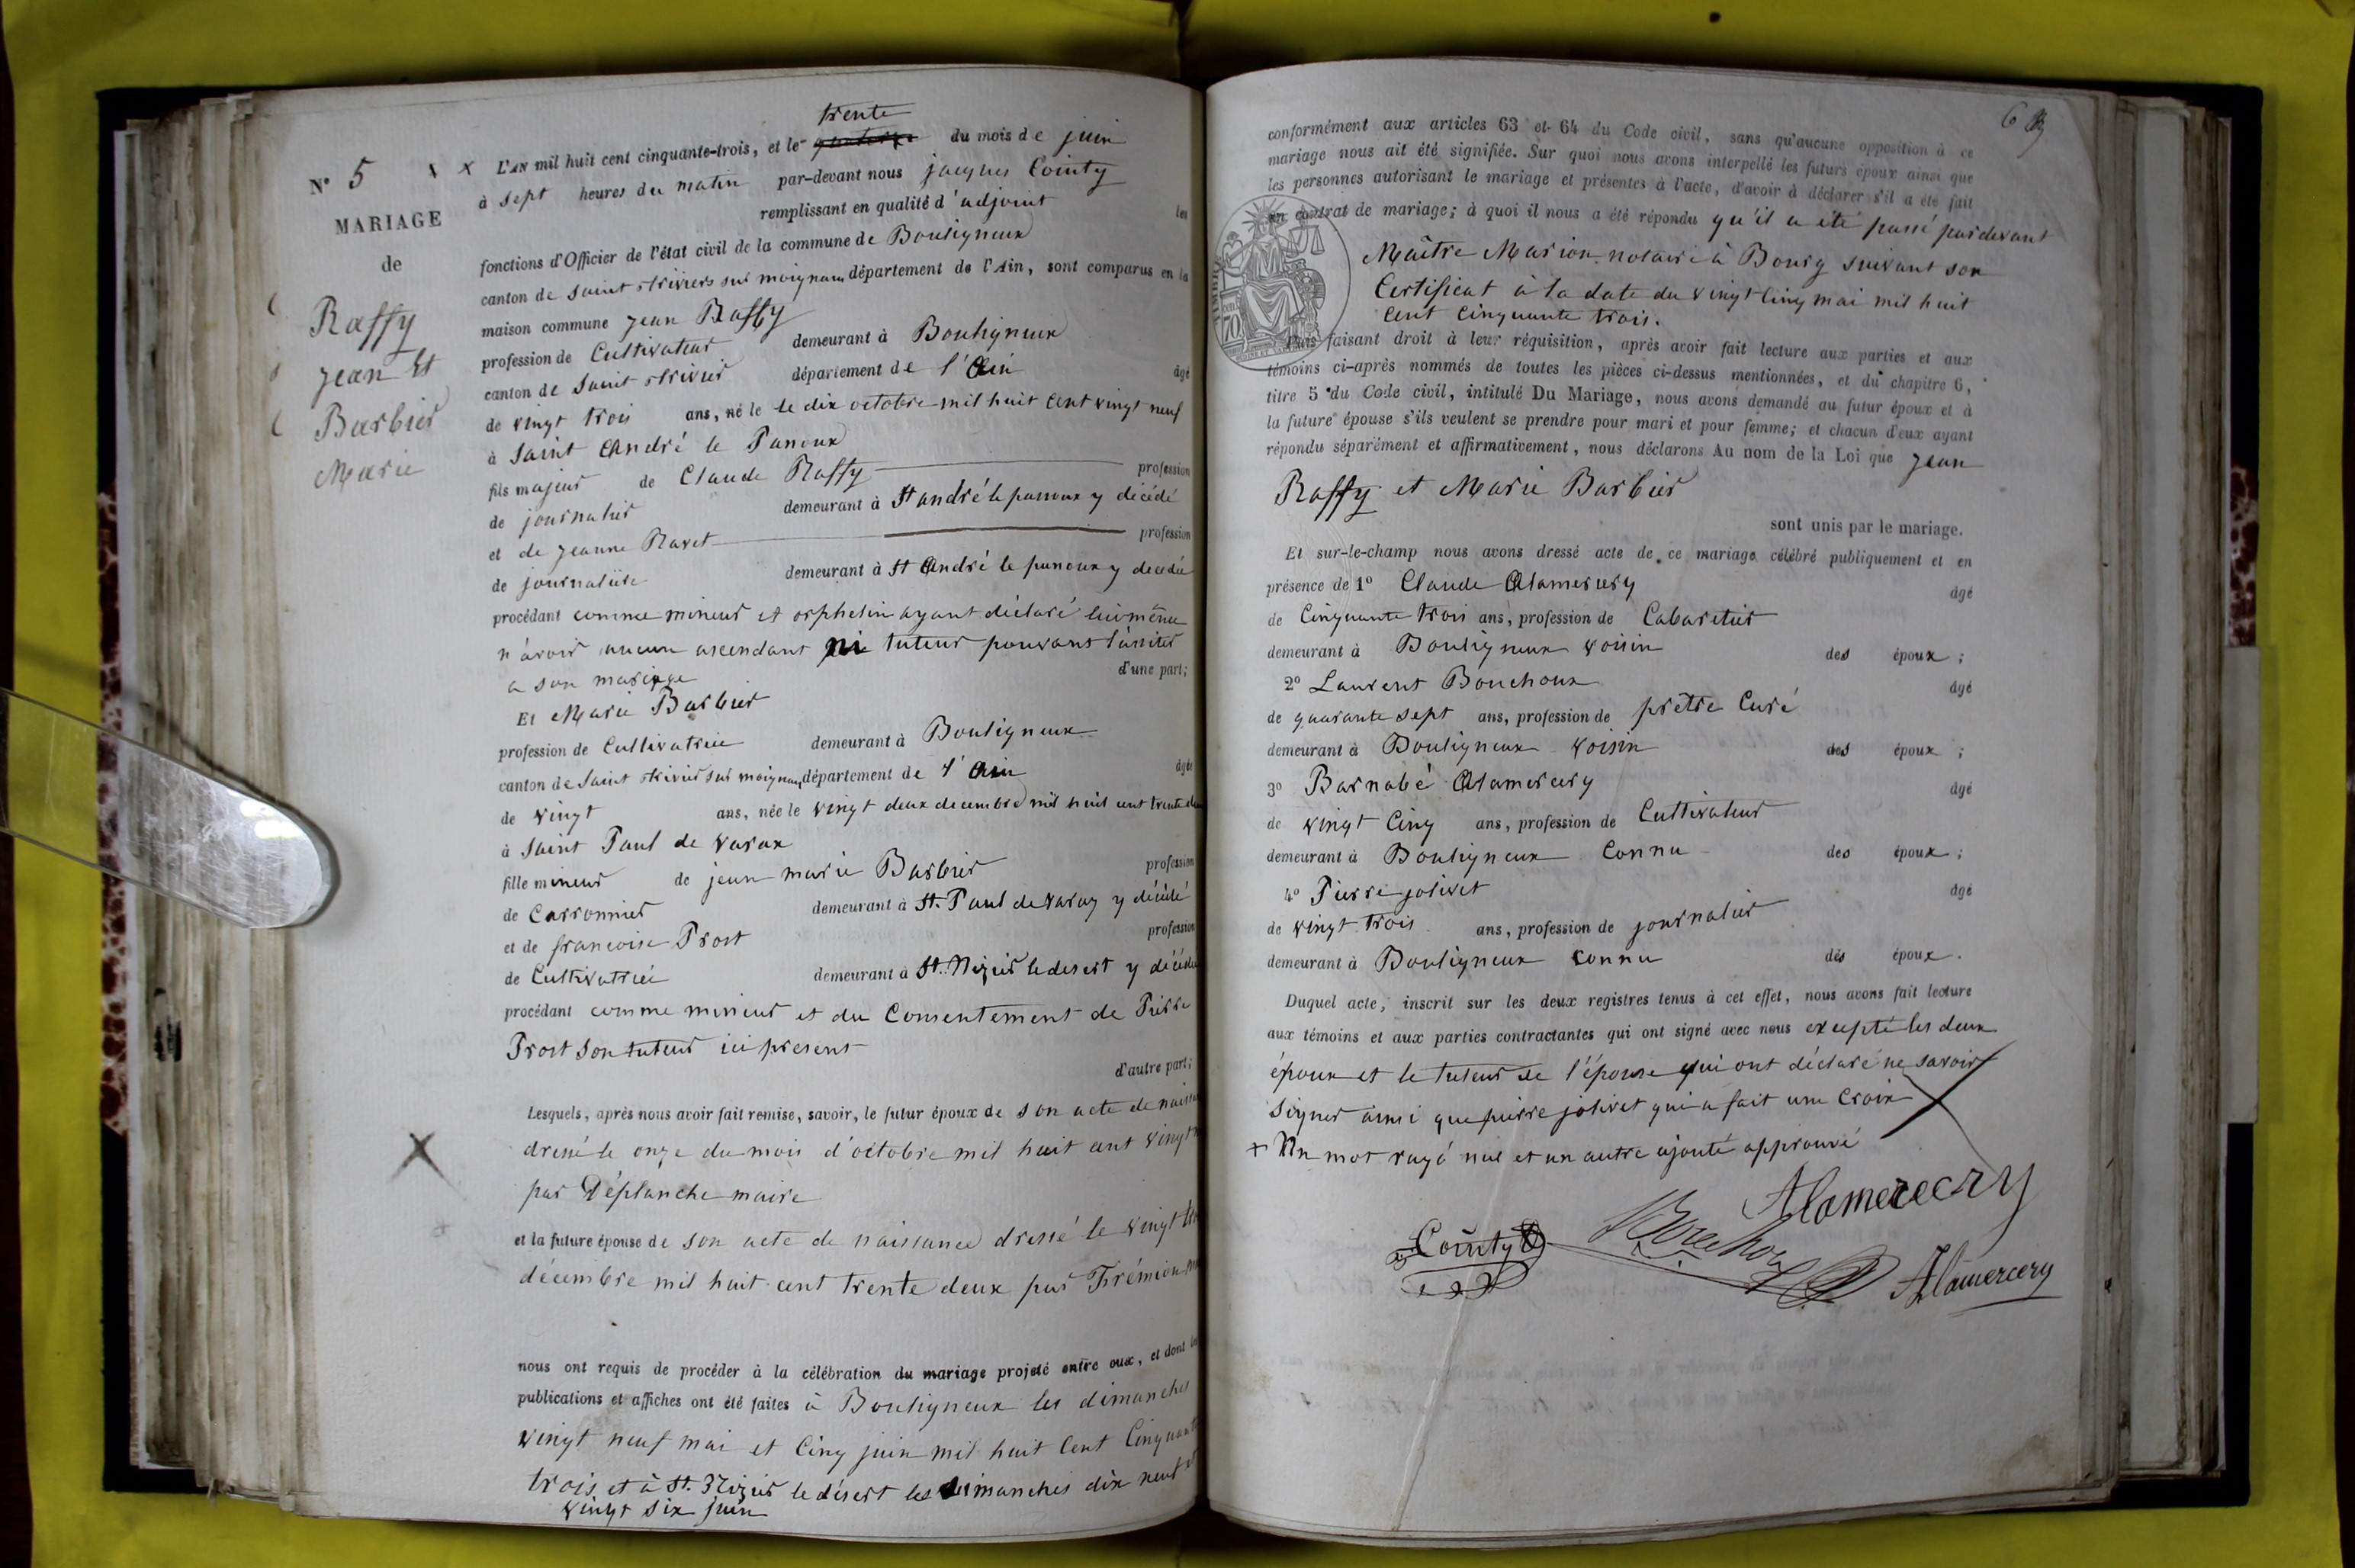 trente
N° 5
L'AN mil huit cent cinquante-trois, et le du mois de juin
à sept heures du matin par-devant nous jacques Cointy
MARIAGE
remplissant en qualité d'adjoint les
fonctions d'Officier de l'état civil de la commune de Bouligneux
de
canton de saint triviers sur moignans département de l'Ain, sont comparus en la
Raffy
jean et
Barbier
Marie
maison commune jean Raffy
profession de Cultivateur demeurant à Bouligneux
canton de saint trivier département de l'Ain âgé
de vingt trois ans, né le le dix octobre mil huit cent vingt neuf
à saint André le Panoux
fils majeur de Claude Raffy profession
de journalier demeurant à St andré le panoux y décédé
et de jeanne Ravet profession
de journalière demeurant à St André le panoux y decedée
procédant comme mineur et orphelin ayant déclaré lui même
n'avoir aucun ascendant ni tuteur pouvant l'assiter
a son mariage d'une part;
Et Marie Barbier
profession de Cultivatrice demeurant à Bouligneux
canton de saint trivier sur moignans département de l'Ain âgée
de vingt ans, née le vingt deux decembre mil huit cent trente deux
à saint Paul de varax
fille mineur de jean marie Barbier profession
de Carronnier demeurant à St. Paul de varax y décédé
et de francoise Prost profession
de Cultivatrice demeurant à St. Nizier le desert y décédée
procédant comme mineur et du Consentement de Pierre
Prost son tuteur ici present
d'autre part;
Lesquels, après nous avoir fait remise, savoir, le futur époux de son acte de
dressé le onze du mois d'octobre mil huit cent vingt
par Déplanche maire
et la future épouse de son acte de naissance dressé le vingt
décembre mil huit cent trente deux par Frémion
nous ont requis de procéder à la célébration du mariage projeté entre eux, et dont les
publications et affiches ont été faites à Bouligneux les dimanches
vingt neuf mai et cinq juin mil huit cent cinquante
trois et à St. Nizier le désert les dimanches dix neuf et
vingt six juin
6
conformément aux articles 63 et 64 du Code civil, sans qu'aucune opposition à ce
mariage nous ait été signifiée. Sur quoi nous avons interpellé les futurs époux ainsi que
les personnes autorisant le mariage et présentes à l'acte, d'avoir à déclarer s'il a été fait
un contrat de mariage; à quoi il nous a été répondu qu'il a été passé pardevant
Maître Marion notaire à Bourg suivant son
Certificat à la date du vingt cinq mai mil huit
cent cinquante trois.
Puis faisant droit à leur réquisition, après avoir fait lecture aux parties et aux
témoins ci-après nommés de toutes les pièces ci-dessus mentionnées, et du chapitre 6,
titre 5 du Code civil, intitulé Du Mariage, nous avons demandé au futur époux et à
la future épouse s'ils veulent se prendre pour mari et pour femme; et chacun d'eux ayant
répondu séparément et affirmativement, nous déclarons Au nom de la Loi que jean
Raffy et Marie Barbier
sont unis par le mariage.
Et sur-le-champ nous avons dressé acte de ce mariage célébré publiquement et en
présence de 1° Claude Alamercery âgé
de Cinquante trois ans, profession de Cabaretier
demeurant à Bouligneux voisin des époux;
2° Laurent Bouchoux âgé
de quarante sept ans, profession de prêtre Curé
demeurant à Bouligneux voisin des époux;
3° Barnabé Alamercery âgé
de vingt cinq ans, profession de Cultivateur
demeurant à Bouligneux connu des époux;
4° Pierre jolivet âgé
de vingt trois ans, profession de journalier
demeurant à Bouligneux connu des époux.
Duquel acte, inscrit sur les deux registres tenus à cet effet, nous avons fait lecture
aux témoins et aux parties contractantes qui ont signé avec nous excepté les deux
époux et le tuteur de l'épouse qui ont déclaré ne savoir
signer ainsi que pierre jolivet qui a fait une croix
+ Un mot rayé nul et un autre ajouté approuvé
Alamercery
Cointy
Bouchoux
Alamercery